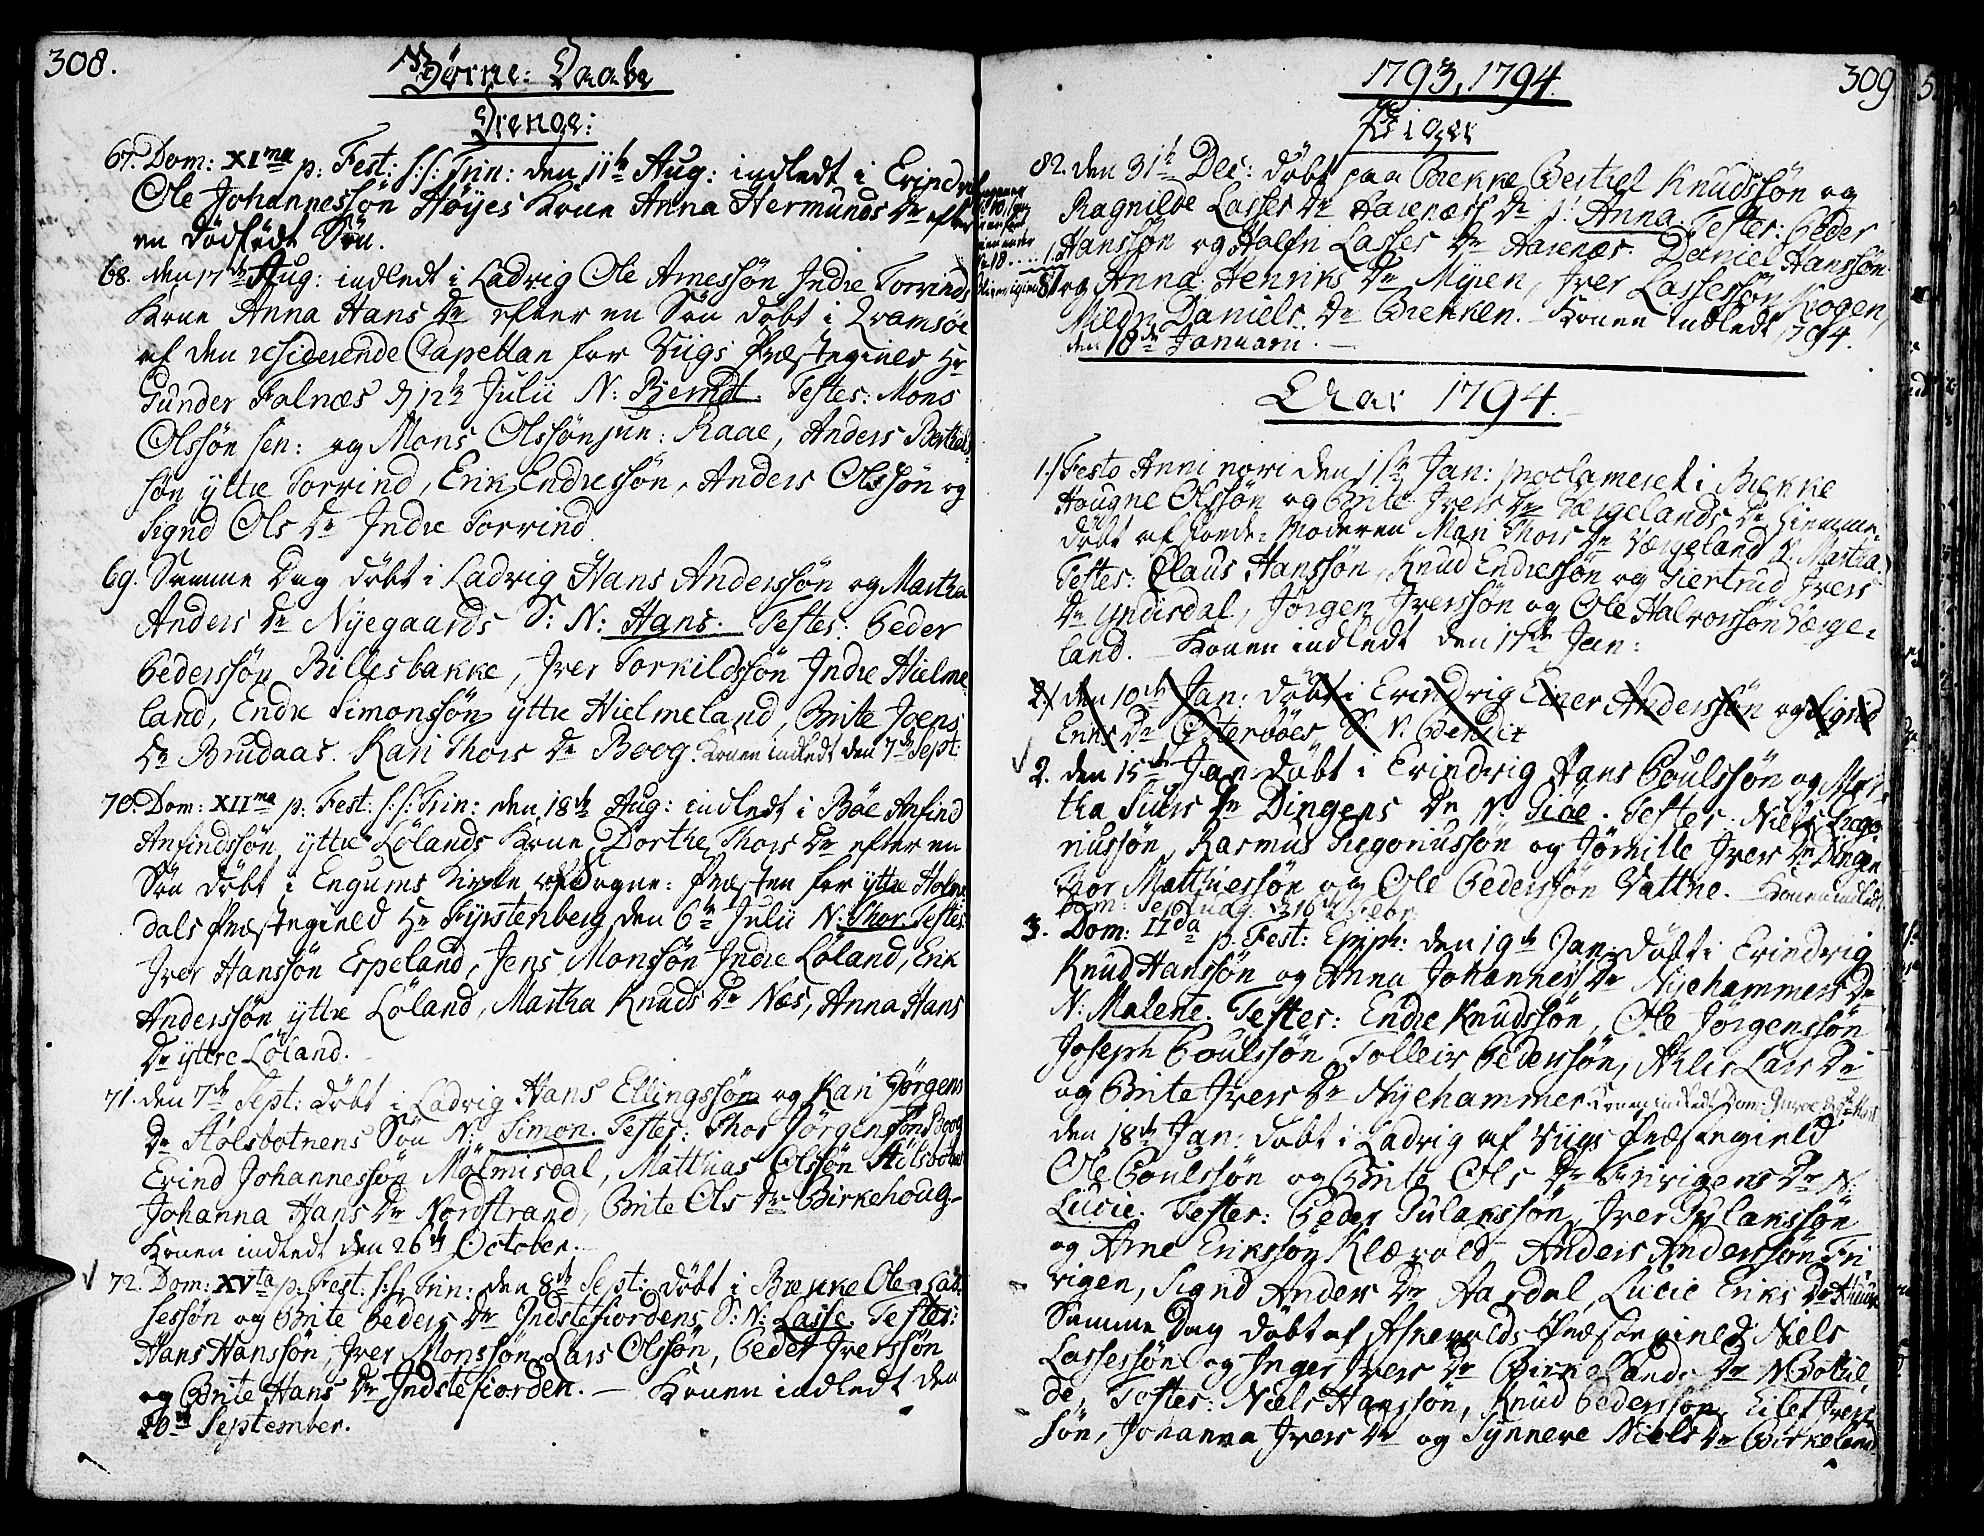 308.
Børne: Daabe
Drenge:
67. Dom: XIma p: Fest: s:s: Trin: den 11te Aug: indledt i Erindvig
Ole Johannessøn Høyes Kone Anna Hermunds Dr efter
en dödfödt Søn.
68. den 17de Aug: indledt i Ladvig Ole Arnessøn Indre Torvinds
Kone Anna Hans Dr efter en Søn döbt i Qvamsøe
af den residerende Capellan for Vigs Præstegield Hr
Gunder Falnæs d 12te Julii N: Berndt. Testes: Mons
Olssøn sen: og Mons Olssøn jun: Raae, Anders Berthels-
søn yttre Torvind, Erik Endressøn, Anders Olssøn og
Signd Ols Dr Indre Torvind
69. Samme Dag döbt i Ladvig Hans Anderssøn og Martha
Anders Dr Nyegaards S: N: Hans. Testes: Peder
Pederssøn Billesbakke, Iver Torkildssøn Indre Hielme-
land, Endre Simonssøn yttre Hielmeland, Brite Joens
Dr Brudaas. Kari Thors Dr Boog. Konen indledt den 7de Sept:
70. Dom: XIIma p: Fest: s:s: Trin: den 18de Aug: indledt i Böe Anfind
Anfindssøn yttre Lölands Kone Dorthe Thors Dr efter en
Søn döbt i Engums Kirke af Sogne-Præsten for yttre Holme-
dals Præstegield Hr Fyrstenberg den 6te Julii N: Thor. Testes:
Iver Hanssøn Espeland, Jens Monssøn Indre Löland, Erik
Anderssøn yttre Löland, Martha Knuds Dr Næs, Anna Hans
Dr yttre Löland.
71. den 7de Sept: döbt i Ladvig Hans Ellingssøn og Kari Jørgens
Dr Stølsbotnens Søn N: Simon. Testes: Thor Jørgenssøn Boog
Erind Johannessøn Malmisdal, Matthias Olssøn Stølsbotn
Johanna Hans Dr Nordstrand, Brite Ols Dr Birkehoug-
Konen indledt den 26de October.
72. Dom: XVta p: Fest: s:s: Trin: den 8de Sept: döbt i Brekke Ole Las-
sessøn og Brite Peders Dr Indstefiordens S: N: Lasse. Testes:
Hans Hanssøn, Iver Monssøn, Lars Olssøn, Peder Iverssøn
og Brite Hans Dr Indstefiorden. — Konen indledt den
September.
1793, 1794.
309
Piger
82. den 31te Dec: döbt paa Brekke Bertil Knudssøn og
Ragnilde Lasses Dr Aarenæss Dr N: Anna. Testes: Peder
Hanssøn og Lasses Dr Aarenæs. Daniel Hanssøn
og Anna Henriks Dr Myren, Iver Lassessøn Krogen,
Daniels Dr Brekken. — Konen indledt 1794.
den 18de Januarii. —
Aar 1794.
1. Festo Anni novi den 1ste Jan: proclameret i Brekke
Hougne Olssøn og Brite Ivers Dr Værgelands Dr hiemme-
döbt af Moderen Mari Thors Dr Værgeland N: Martha.
Testes: Claus Hanssøn, Knud Endressøn og Giertrud Ivers
Dr Yndisdal, Jørgen Iverssøn og Ole Halvorssøn Værge-
land. — Konen indledt den 17de Jan:
2. den 10de Jan: döbt i Erindvig Einer Anderssøn og Sigrid
Dr Østerbøes S N: Bendix
2. den 15de Jan: döbt i Erindvig Hans Poulssøn og Mar-
tha Siurs Dr Dingens Dr N: Siøe. Testes: Niels Grego-
riussøn, Rasmus Gregoriussøn og Jørnille Ivers Dr Dingen
Matthiessøn og Ole Pederssøn Vattne. — Konen indledt
Dom: Septuag: d: 16de Febr:
3. Dom: IIda p: Fest: Epiph: den 19de Jan: döbt i Erindvig
Knud Hanssøn og Anna Johannes Dr Nyehammers Dr
N: Malene. Testes: Endre Knudssøn, Ole Jörgenssøn
Joseph Poulssøn, Tolleiv Pederssøn, Lars Dr
og Brite Ivers Dr Nyehammer. Konen indledt Dom:
den 18de Jan: döbt i Ladvig af Vigs Præstegield
Ole Poulssøn og Brite Ols Dr Dr N:
Lucie. Testes: Peder Gulakssøn, Iver Gulakssøn
og Arne Erikssøn Klævold, Anders Anderssøn Fri-
vigen, Signd Anders Dr Aardal, Lucie Eriks Dr
Samme Dag döbt af Præstegield Niels
Lassessøn og Inger Ivers Dr Birkelands Dr N: Bothil-
de, Testes: Niels Hanssøn, Knud Pederssøn, Eilef Ivers-
søn, Johanna Ivers Dr og Synneve Niels Dr Birkeland